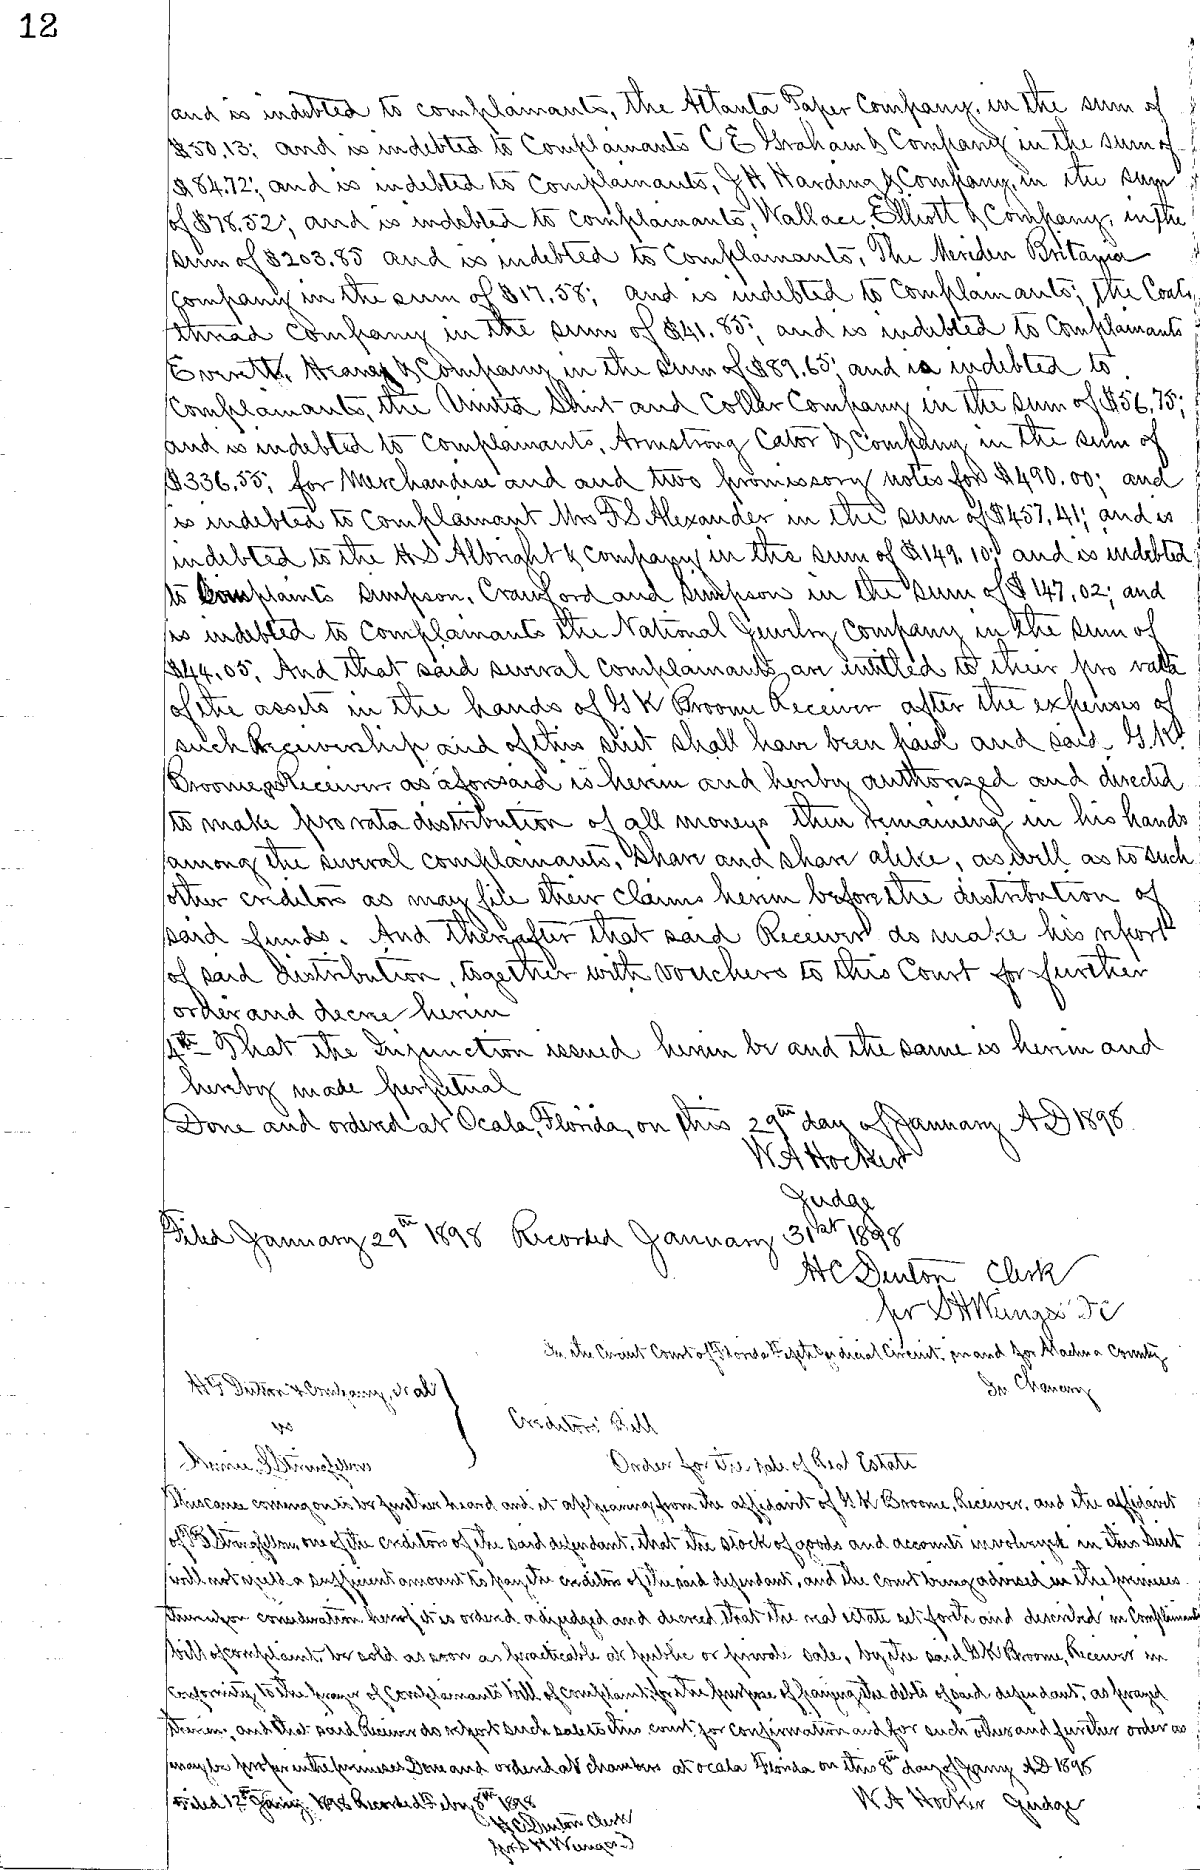 12
and is indebted to complainants, the Atlanta Paper Company, in the sum of
$50.13; and is indebted to Complainants C E Graham & Company in the sum of
$84.72; and is indebted to Complainants, J H Harding & Company, in the sum
of $78.52; and is indebted to complainants, Wallace, Elliott & Company, in the
sum of $203.85 and is indebted to Complainants, The Meriden Britania
Company in the sum of $17.58; and is indebted to Complainants; the Coats
thread Company in the sum of $41.85; and is indebted to Complainants
Everett, & Company in the sum of $89.65; and is indebted to
Complainants, the United Shirt and Collar Company in the sum of $56.75;
and is indebted to Complainants, Armstrong Cator & Company in the sum of
$336.55; for Merchandise and and two promissory notes for $490.00; and
is indebted to Complainant Mrs F S Alexander in the sum of $457.41; and is
indebted to the H S Albright & Company in the sum of $149.10; and is indebted
to Complaints Simpson, Crawford and Simpson in the sum of $147.02; and
is indebted to Complainants the National Jewelry Company in the sum of
$44.05. And that said several complainants are intitled to their pro rata
of the assets in the hands of G K Broome Receiver after the expenses of
such Receivership and of this suit shall have been paid and said G.K.
Broome Receiver as aforesaid is herein and hereby authorized and directed
to make pro rata distribution of all moneys then remaining in his hands
among the several complainants, share and share alike, as well as to such
other creditors as may file their claims herein before the distribution of
said funds. And thereafter that said Receiver do make his report
of said distribution, together with vouchers to this Court for further
order and decree herein
4th That the Injunction issued herein be and the same is herein and
hereby made perpetual
Done and ordered at Ocala, Florida, on this 29th day of January A D 1898
W A Hocker
Judge
Filed January 29th 1898 Recorded January 31st 1898
H C Denton Clerk
per S H Wienges D C
In the Circuit Court of Florida Fifth Judicial Circuit, in and for Alachua County
In Chancery
H F Dutton & Company, et al
vs
Creditors' Bill
Annie S Stringfellow
Order for the sale of Real Estate
This cause coming on to be further heard and it appearing from the affidavit of G K Broome, Receiver, and the affidavit
of Stringfellow one of the creditors of the said defendant, that the stock of goods and accounts involved in this suit
will not yield a sufficient amount to pay the creditors of the said defendant, and the court being advised in the premises
thereupon consideration hereof it is ordered adjudged and decreed that the real estate set forth and described in Complainants
bill of complaint be sold as soon as practicable at public or private sale, by the said G K Broome, Receiver in
conformity to the prayer of Complainants bill of complaint; for the purpose of paying the debts of said defendant, as prayed
therein, and that said Receiver do report such sale to this court for confirmation and for such other and further order as
may be proper in the premises. Done and ordered at chambers at Ocala Florida on this 8th day of Jany AD 1898
W A Hocker Judge
Filed 12th Jany. 1898 Recorded Feby 8th 1898
H C Denton Clerk
per S H Wienges